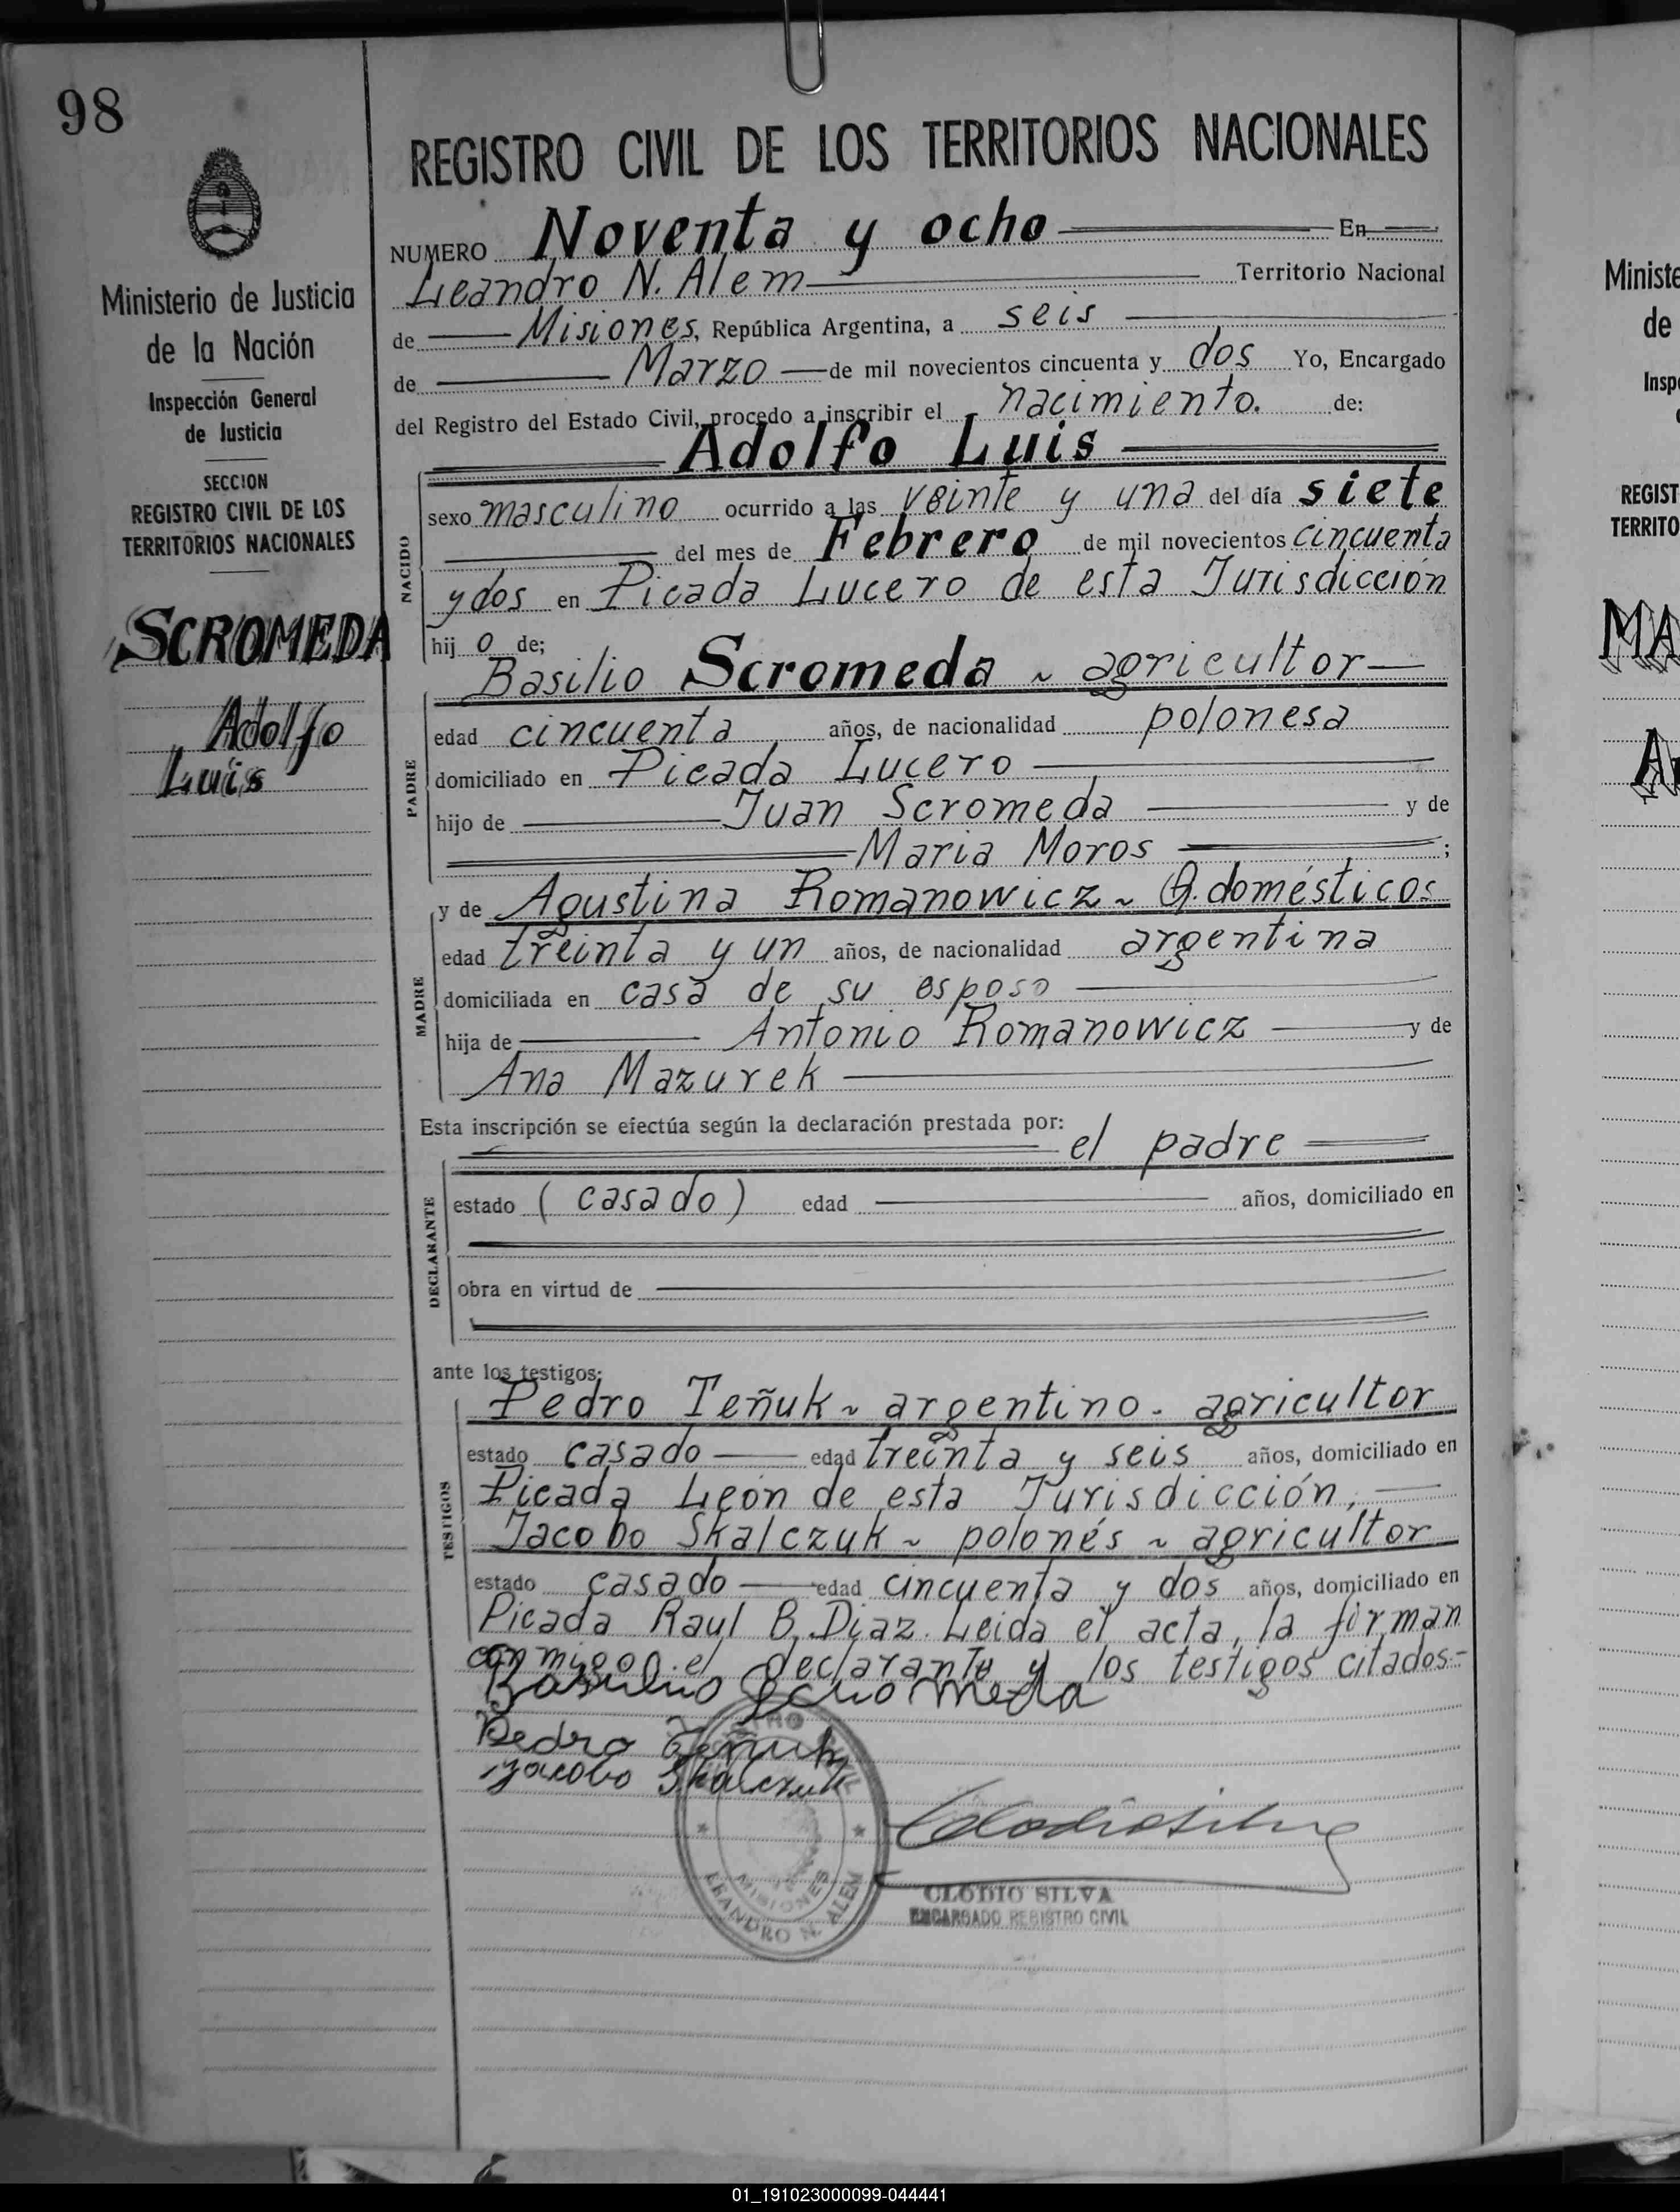 98
REGISTRO CIVIL DE LOS TERRITORIOS NACIONALES
NUMERO Noventa y ocho En
Leandro N. Alem Territorio Nacional
de Misiones, República Argentina, a seis
de Marzo de mil novecientos cincuenta y dos Yo, Encargado
del Registro del Estado Civil, procedo a inscribir el nacimiento. de:
Adolfo Luis
Ministerio de Justicia
de la Nación
Inspección General
de Justicia
SECCION
REGISTRO CIVIL DE LOS
TERRITORIOS NACIONALES
SCROMEDA
Adolfo
Luis
NACIDO
sexo masculino ocurrido a las veinte y una del día siete
del mes de Febrero de mil novecientos cincuenta
y dos en Picada Lucero de esta Jurisdicción
hij o de;
Basilio Scromeda ~ agricultor
PADRE
edad cincuenta años, de nacionalidad polonesa
domiciliado en Picada Lucero
hijo de Juan Scromeda y de
Maria Moros ;
y de Agustina Romanowicz ~ Q. domésticos
MADRE
edad treinta y un años, de nacionalidad argentina
domiciliada en casa de su esposo
hija de Antonio Romanowicz y de
Ana Mazurek
Esta inscripción se efectúa según la declaración prestada por:
el padre
DECLARANTE
estado (casado) edad años, domiciliado en
obra en virtud de
ante los testigos:
Pedro Teñuk ~ argentino - agricultor
TESTIGOS
estado casado edad treinta y seis años, domiciliado en
Picada León de esta Jurisdicción,
Jacobo Skalczuk ~ polonés ~ agricultor
estado casado edad cincuenta y dos años, domiciliado en
Picada Raul B. Diaz. Leida el acta, la firman
conmigo el declarante y los testigos citados.-
Pedro Teñuk
Jacobo Skalczuk
MISIONES
LEANDRO N. ALEM
CLODIO SILVA
ENCARGADO REGISTRO CIVIL
Ministe
de
Insp
REGIST
TERRITO
MA
01_191023000099-044441